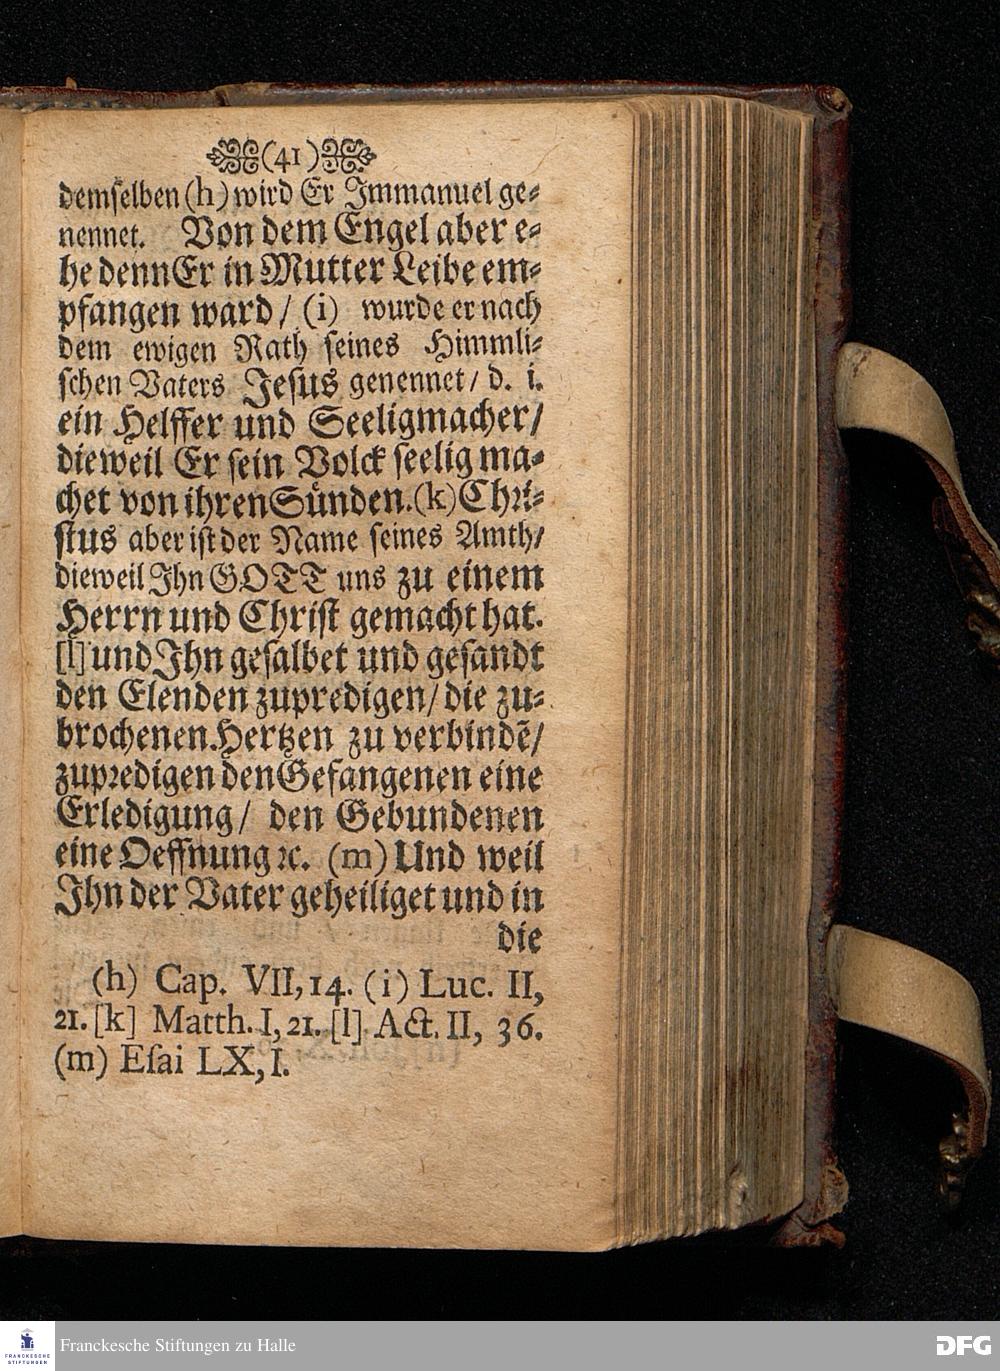 (41)
demselben (h) wird Er Immanuel ge-
nennet. Von dem Engel aber e-
he denn Er in Mutter Leibe em-
pfangen ward / (i) wurde er nach
dem ewigen Rath seines Himmli-
schen Vaters Jesus genennet / d. i.
ein Helffer und Seeligmacher /
dieweil Er sein Volck seelig ma-
chet von ihren Sünden. (k) Chri-
stus aber ist der Name seines Amth /
dieweil Ihn GOTT uns zu einem
Herrn und Christ gemacht hat.
[l] und Ihn gesalbet und gesandt
den Elenden zupredigen / die zu-
brochenen Hertzen zu verbindē /
zupredigen den Gefangenen eine
Erledigung / den Gebundenen
eine Oeffnung ꝛc. (m) Und weil
Ihn der Vater geheiliget und in
die
(h) Cap. VII, 14. (i) Luc. II,
21. [k] Matth. I, 21. [l] Act. II, 36.
(m) Esai LX, I.
FRANCKESCHE
STIFTUNGEN
Franckesche Stiftungen zu Halle
DFG